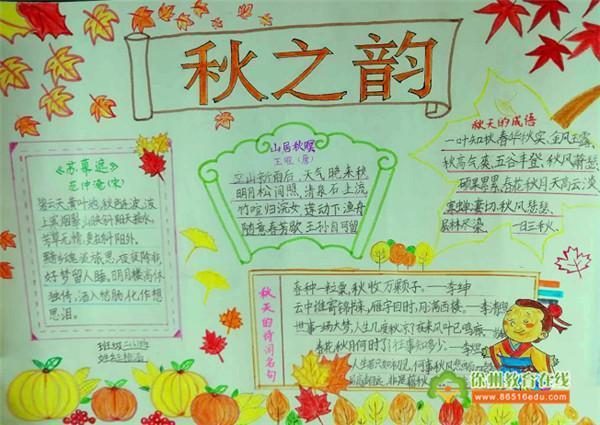 秋之韵
《苏幕遮》
范仲淹(宋)
碧云天,黄叶地,秋色连波,波
上寒烟翠,山映斜阳天接水,
芳草无情,更在斜阳外。
黯乡魂,追旅思,夜夜除非,
好梦留人睡。明月楼高休
独倚,酒入愁肠,化作相
思泪。
班级
姓名
山居秋暝
王维(唐)
空山新雨后,天气晚来秋
明月松间照,清泉石上流
竹喧归浣女,莲动下渔舟
随意春芳歇,王孙自可留
秋天的成语
一叶知秋,春华秋实,金风玉露,
秋高气爽,五谷丰登,秋风萧瑟,
硕果累累,春花秋月,天高云淡
寒蝉凄切,秋风瑟瑟,
层林尽染,一日三秋。
秋天的诗词名句
春种一粒粟,秋收万颗子。——李绅
云中谁寄锦书来,雁字回时,月满西楼。——李清照
世事一场大梦,人生几度秋凉?
春花秋月何时了?往事知多少。——李煜
人生若只如初见,何事秋风悲画
徐州教育在线
www.86516edu.com